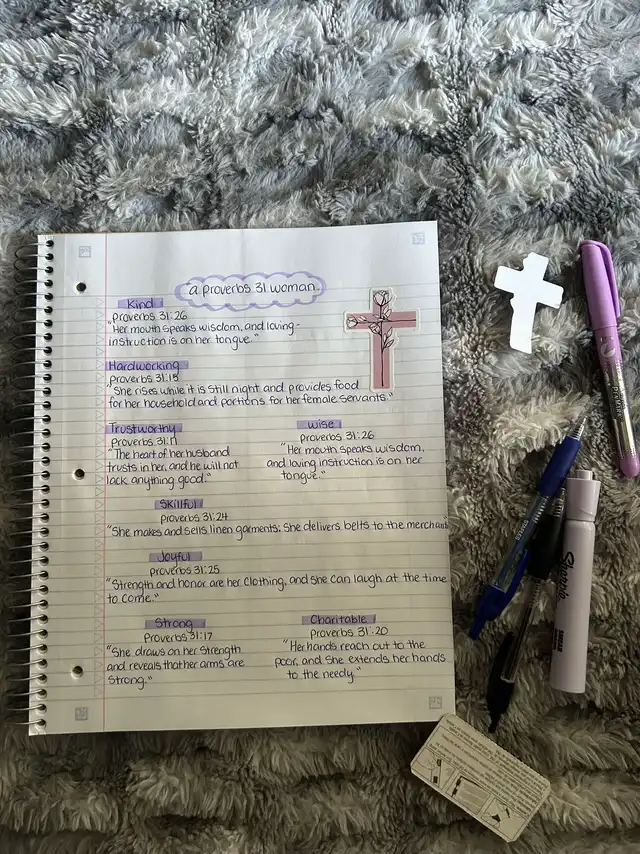 a proverbs 31 woman.
Kind
Proverbs 31:26
"Her mouth speaks wisdom, and loving-
instruction is on her tongue."
Hardworking
Proverbs 31:15
"She rises while it is still night and provides food
for her household and portions for her female servants."
Trustworthy
Proverbs 31:11
"The heart of her husband
trusts in her, and he will not
lack anything good."
wise
proverbs 31:26
"Her mouth speaks wisdom,
and loving instruction is on her
tongue."
Skillful
proverbs 31:24
"She makes and sells linen garments; She delivers belts to the merchants"
Joyful
proverbs 31:25
"Strength and honor are her clothing, and she can laugh at the time
to come."
Strong
Proverbs 31:17
"She draws on her strength
and reveals that her arms are
strong."
Charitable
Proverbs 31:20
"Her hands reach out to the
poor, and she extends her hands
to the needy."
Sharpie